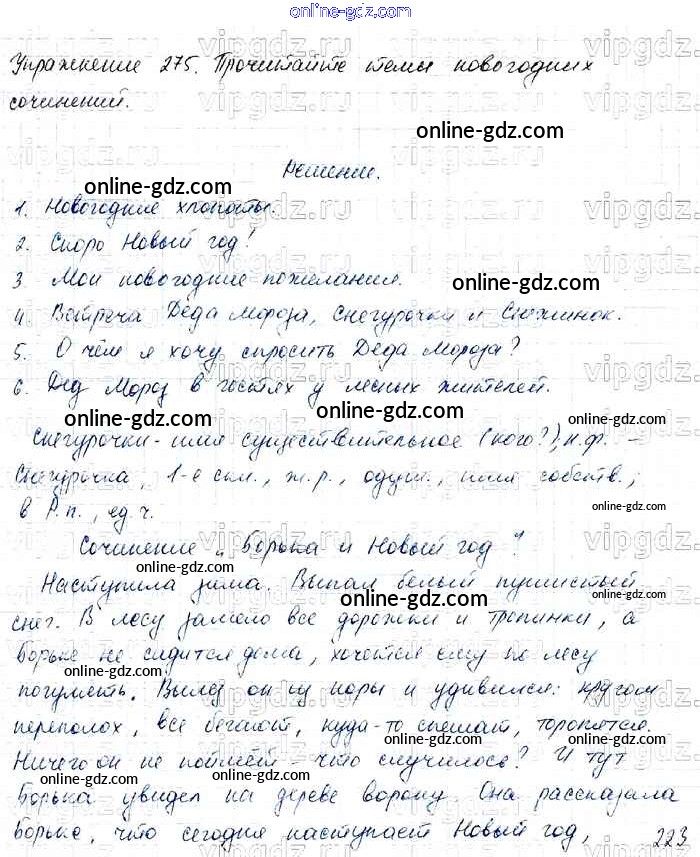 online-gdz.com
Упражнение 275. Прочитайте темы новогодних
сочинений.
online-gdz.com
Решение.
online-gdz.com
1. Новогодние хлопоты.
2. Скоро Новый год!
3. Мои новогодние пожелания.
online-gdz.com
4. Встреча Деда Мороза, Снегурочки и Снежинок.
5. О чём я хочу спросить Деда Мороза?
6. Дед Мороз в гостях у лесных жителей.
online-gdz.com online-gdz.com online-gdz.com
Снегурочки - имя существительное (кого?), н.ф. -
Снегурочка, 1-е скл., ж.р., одуш., имя собств.;
в Р.п., ед.ч.
online-gdz.com
Сочинение „Борька и Новый год"
Наступила зима. Выпал белый пушистый
online-gdz.com
снег. В лесу замело все дорожки и тропинки, а
Борьке не сидится дома, хочется ему по лесу
online-gdz.com online-gdz.com
погулять. Вылез он из норы и удивился: кругом
переполох, все бегают, куда-то спешат, торопятся.
Ничего он не поймёт - что случилось? И тут
online-gdz.com online-gdz.com
Борька увидел на дереве ворону. Она рассказала
Борьке, что сегодня наступает Новый год,
223
online-gdz.com
vipgdz.ru